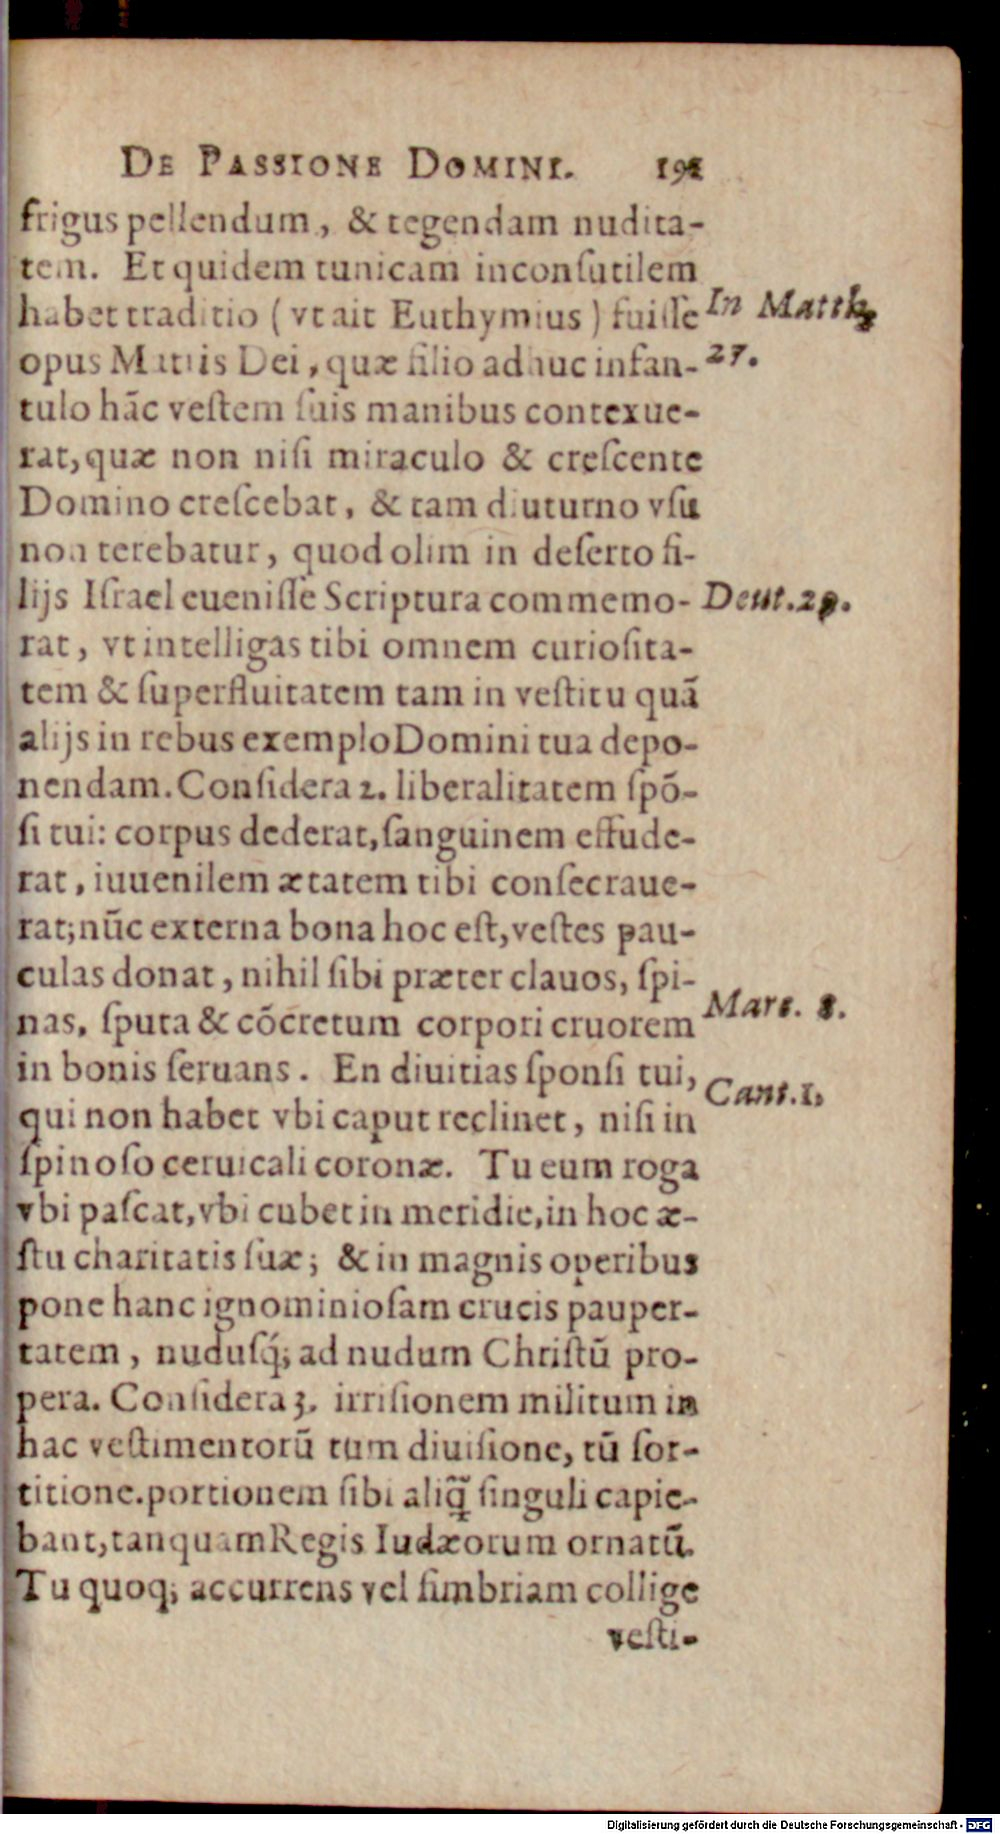 DE PASSIONE DOMINI. 191
frigus pellendum, & tegendam nudita-
tem. Et quidem tunicam inconſutilem
habet traditio (vt ait Euthymius) fuiſſe
In Matth.
opus Matris Dei, quæ filio adhuc infan-
27.
tulo hãc veſtem ſuis manibus contexue-
rat, quæ non niſi miraculo & creſcente
Domino creſcebat, & tam diuturno vſu
non terebatur, quod olim in deſerto fi-
lijs Iſrael eueniſſe Scriptura commemo-
Deut. 29.
rat, vt intelligas tibi omnem curioſita-
tem & ſuperfluitatem tam in veſtitu quã
alijs in rebus exemplo Domini tua depo-
nendam. Conſidera 2. liberalitatem ſpõ-
ſi tui: corpus dederat, ſanguinem effude-
rat, iuuenilem ætatem tibi conſecraue-
rat; nũc externa bona hoc eſt, veſtes pau-
culas donat, nihil ſibi præter clauos, ſpi-
nas, ſputa & cõcretum corpori cruorem
Marc. 8.
in bonis ſeruans. En diuitias ſponſi tui,
Cant. 1.
qui non habet vbi caput reclinet, niſi in
ſpinoſo ceruicali coronæ. Tu eum roga
vbi paſcat, vbi cubet in meridie, in hoc æ-
ſtu charitatis ſuæ; & in magnis operibus
pone hanc ignominioſam crucis pauper-
tatem, nuduſq́; ad nudum Chriſtũ pro-
pera. Conſidera 3. irriſionem militum in
hac veſtimentorũ tum diuiſione, tũ ſor-
titione. portionem ſibi aliq̃ ſinguli capie-
bant, tanquam Regis Iudæorum ornatũ.
Tu quoq; accurrens vel fimbriam collige
veſti-
Digitalisierung gefördert durch die Deutsche Forschungsgemeinschaft - DFG